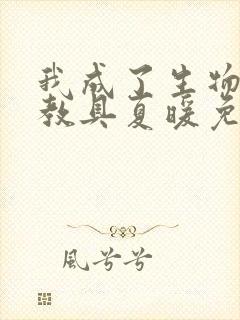 我成了生物
教具夏暖免
風兮兮